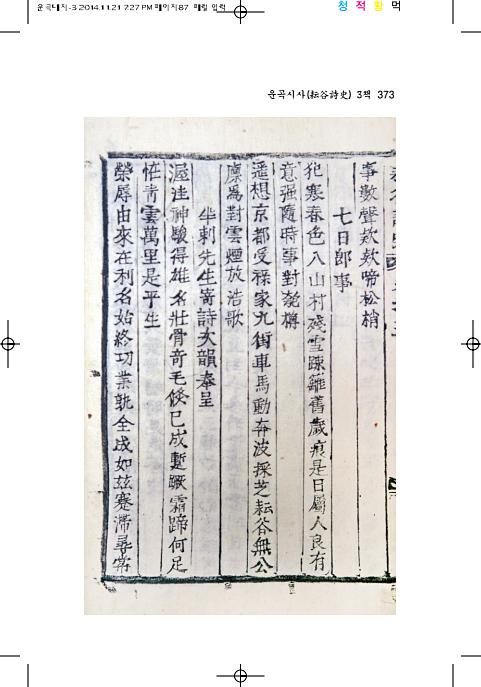 운곡대지-3 2014.11.21 7:27 PM 페이지87 매킬 입력
청 적 황 먹
운곡시사(耘谷詩史) 3책 373
事數聲欸欸啼松梢
七日郎事
犯寒春色入山村殘雪踈籬舊歲痕是日屬人良有
意强隨時事對匏樽
遥想京都受祿家九街車馬動奔波採芝耘谷無公
廩爲對雲烟放浩歌
半刺先生寄詩次韻奉呈
渥洼神駿得雄名壯骨奇毛倐已成蹔蹶霜蹄何足
恠靑雲萬里是平生
榮辱由來在利名始終功業孰全成如玆蹇滯尋常